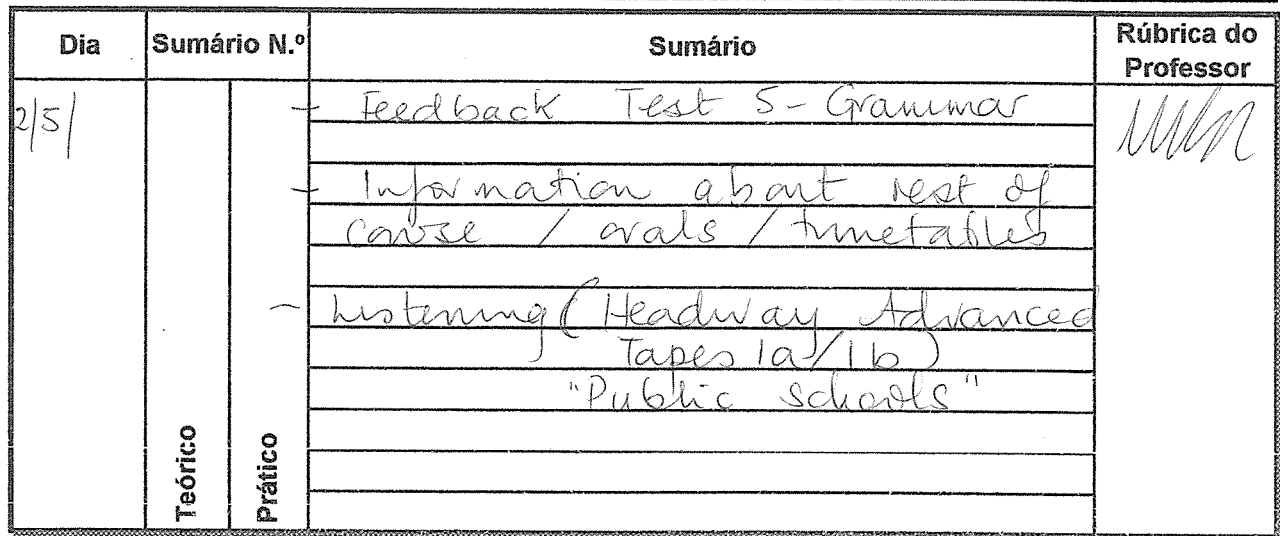 Dia Sumário N.º Sumário Rúbrica do Professor
2/5/ - Feedback Test 5 - Grammar
- Information about rest of
course / orals / timetables
- Listening (Headway Advanced
Tapes 1a/1b)
"Public schools"
Teórico Prático